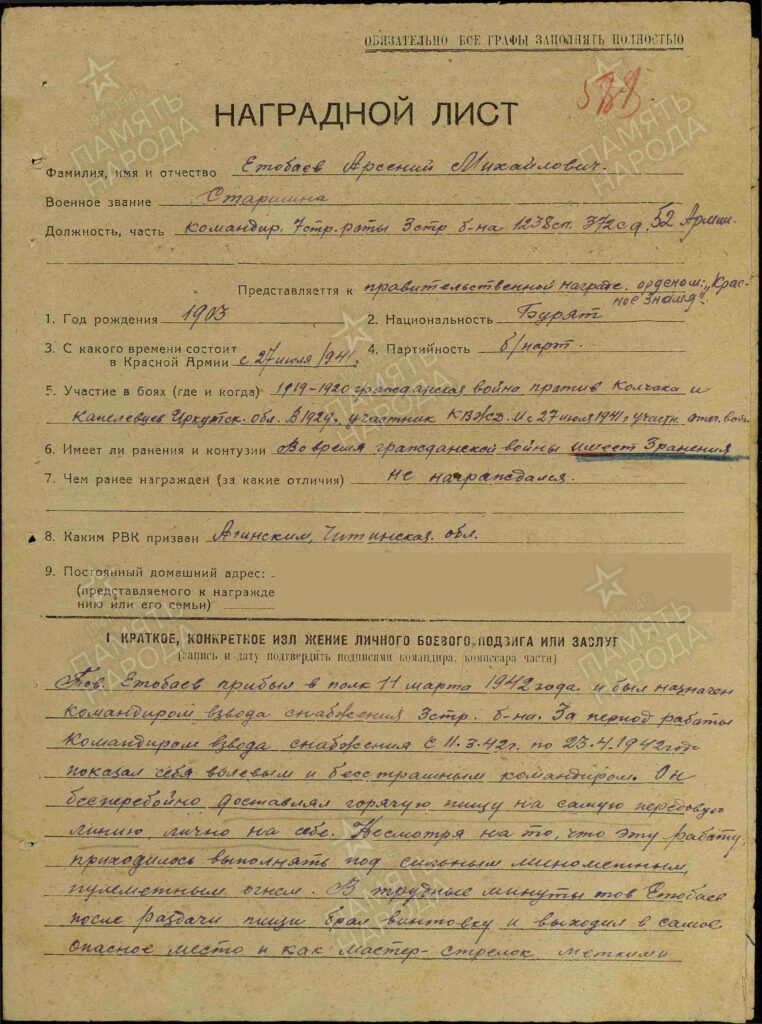 ОБЯЗАТЕЛЬНО ВСЕ ГРАФЫ ЗАПОЛНЯТЬ ПОЛНОСТЬЮ
НАГРАДНОЙ ЛИСТ
Фамилия, имя и отчество Етобаев Арсений Михайлович.
Военное звание Старшина
Должность, часть командир 7 стр. роты 3 стр б-на 1238 сп. 372 сд. 52 Армии.
Представляеття к правительственной награде. орденом: „Крас-
ное Знамя".
1. Год рождения 1903 2. Национальность Бурят
3. С какого времени состоит
в Красной Армии с 27 июля 1941. 4. Партийность б/парт.
5. Участие в боях (где и когда) 1919-1920 гражданская война против Колчака и
Капелевцев Иркутск. обл. В 1929г. участник КВЖД. И с 27 июля 1941 г участн. отеч. войн
6. Имеет ли ранения и контузии Во время гражданской войны имеет 3 ранения
7. Чем ранее награжден (за какие отличия) не награждался.
8. Каким РВК призван Агинским, Читинская обл.
9. Постоянный домашний адрес:
(представляемого к награжде
нию или его семьи)
I. КРАТКОЕ, КОНКРЕТНОЕ ИЗЛ ЖЕНИЕ ЛИЧНОГО БОЕВОГО ПОДВИГА ИЛИ ЗАСЛУГ
(запись и дату подтвердить подписями командира, комиссара части)
Тов. Етобаев прибыл в полк 11 марта 1942 года. и был назначен
командиром взвода снабжения 3 стр. б-на. За период работы
командиром взвода снабжения с 11.3.42г. по 23.4.1942 год
показал себя волевым и бесстрашным командиром. Он
бесперебойно доставлял горячую пищу на самую передовую
линию, лично на себе. Несмотря на то, что эту работу,
приходилось выполнять под сильным минометным,
пулеметным огнем. В трудные минуты тов Етобаев
после раздачи пищи брал винтовку и выходил в самое
опасное место и как мастер-стрелок меткими
ПАМЯТЬ
НАРОДА
ПАМЯТЬ
НАРОДА
ПАМЯТЬ
НАРОДА
ПАМЯТЬ
НАРОДА
ПАМЯТЬ
НАРОДА
ПАМЯТЬ
НАРОДА